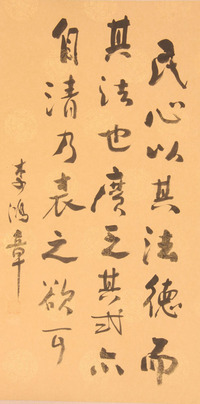 民心以其法德而
其法也广之其武亦
自清乃表之欲可
李鸿章